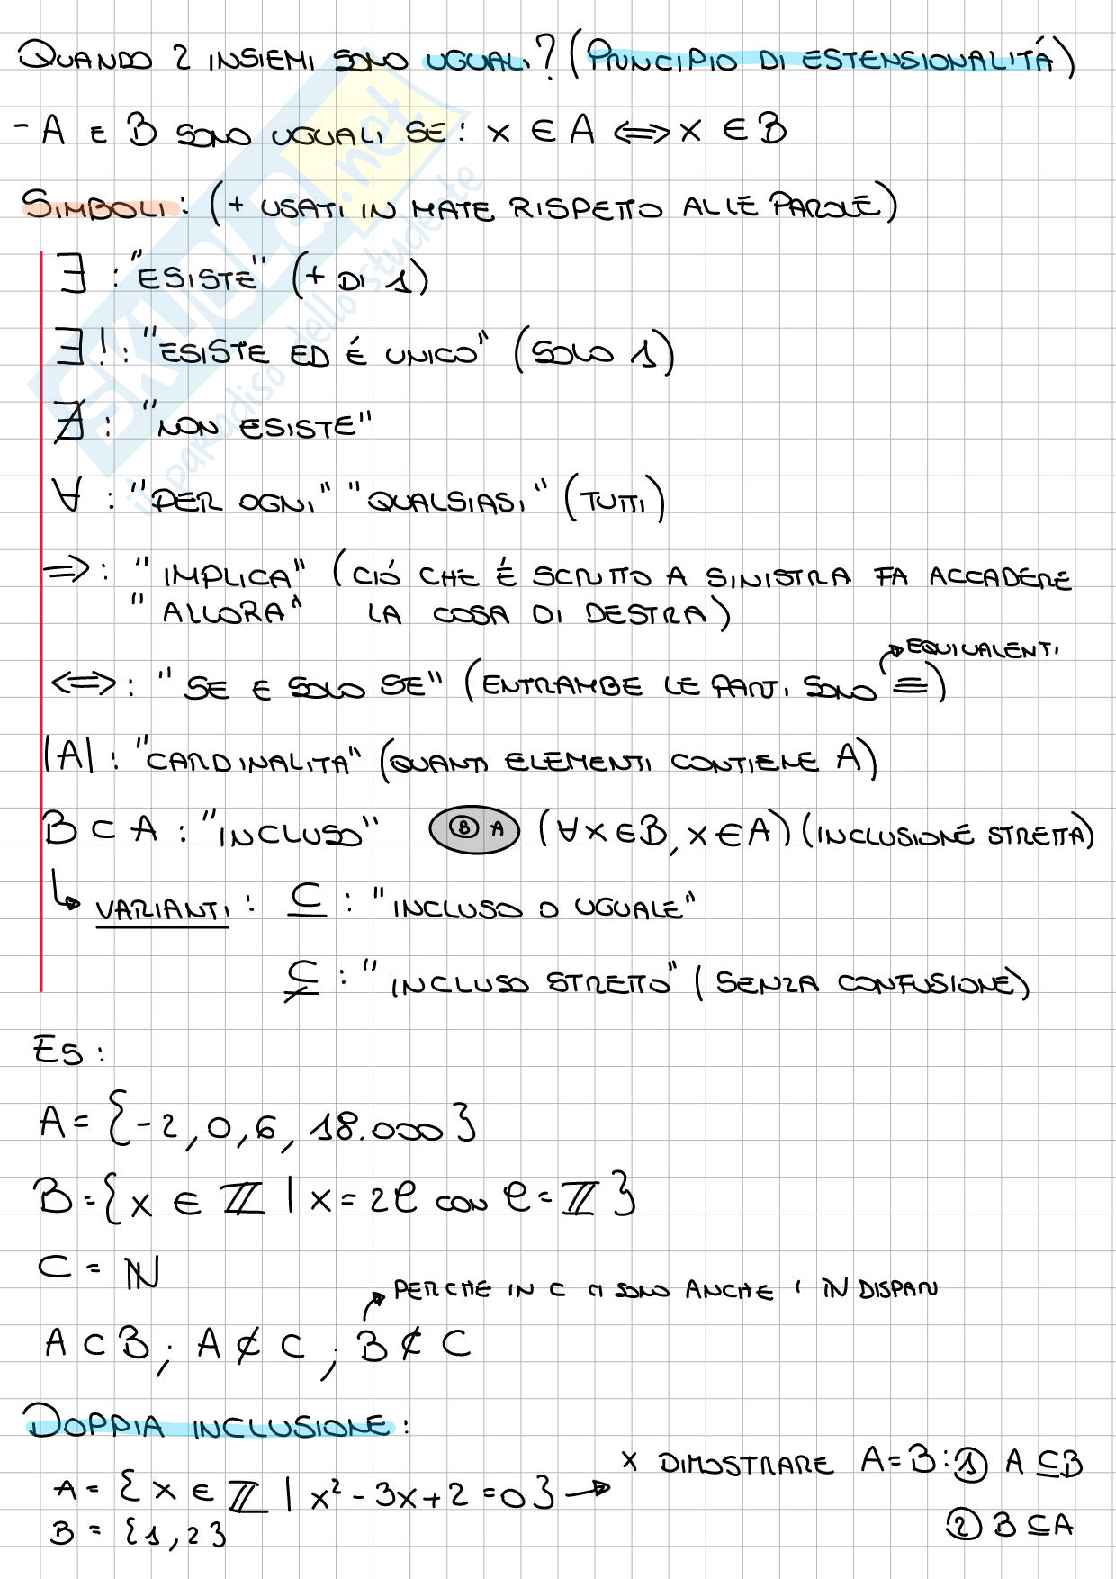 QUANDO 2 INSIEMI SONO UGUALI? (PRINCIPIO DI ESTENSIONALITÁ)
- A E B SONO UGUALI SE: x ∈ A ⟺ x ∈ B
SIMBOLI: (+ USATI IN MATE RISPETTO ALLE PAROLE)
∃ : "ESISTE" (+ DI 1)
∃! : "ESISTE ED É UNICO" (SOLO 1)
∄ : "NON ESISTE"
∀ : "PER OGNI" "QUALSIASI" (TUTTI)
⇒ : "IMPLICA" (CIÓ CHE É SCRITTO A SINISTRA FA ACCADERE
"ALLORA" LA COSA DI DESTRA)
EQUIVALENTI
⟺ : "SE E SOLO SE" (ENTRAMBE LE PARTI SONO ≡)
|A| : "CARDINALITA" (QUANTI ELEMENTI CONTIENE A)
B ⊂ A : "INCLUSO" B A (∀x∈B, x∈A) (INCLUSIONE STRETTA)
↳ VARIANTI : ⊆ : "INCLUSO O UGUALE"
⊊ : "INCLUSO STRETTO" (SENZA CONFUSIONE)
ES :
A = {-2, 0, 6, 18.000}
B = {x ∈ ℤ | x = 2e CON e = ℤ}
C = ℕ
PERCHÉ IN C CI SONO ANCHE I ℕ DISPARI
A ⊂ B ; A ⊄ C ; B ⊄ C
DOPPIA INCLUSIONE :
A = {x ∈ ℤ | x² - 3x + 2 = 0} → x DIMOSTRARE A = B : ① A ⊆ B
B = {1, 2} ② B ⊆ A
SKUOLA.net
il paradiso dello studente